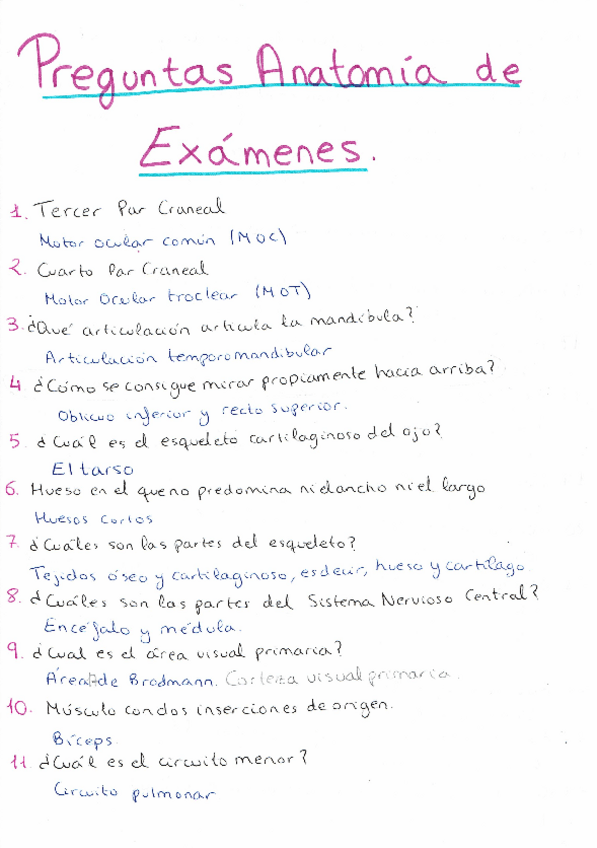 Preguntas Anatomía de
Exámenes.
1. Tercer Par Craneal
Motor ocular común (MOC)
2. Cuarto Par Craneal
Motor Ocular troclear (MOT)
3. ¿Qué articulación articula la mandíbula?
Articulación temporomandibular
4 ¿Cómo se consigue mirar propiamente hacia arriba?
Oblicuo inferior y recto superior.
5. ¿Cuál es el esqueleto cartilaginoso del ojo?
El tarso
6. Hueso en el que no predomina ni el ancho ni el largo
Huesos cortos
7. ¿Cuáles son las partes del esqueleto?
Tejidos óseo y cartilaginoso, es decir, hueso y cartílago
8. ¿Cuáles son las partes del Sistema Nervioso Central?
Encéfalo y médula.
9. ¿Cual es el área visual primaria?
Área 17 de Brodmann. Corteza visual primaria.
10. Músculo con dos inserciones de origen.
Bíceps.
11. ¿Cuál es el circuito menor?
Circuito pulmonar